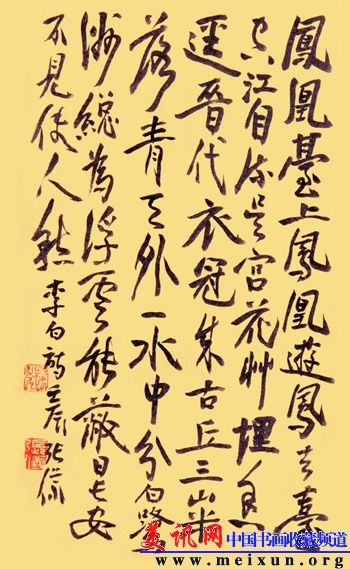 鳳凰臺上鳳凰遊鳳去臺
空江自流吳宮花艸埋幽
逕晉代衣冠成古丘三山半
落青天外一水中分白鷺
洲總為浮雲能蔽日長安
不見使人愁 李白詩 壬辰 張
美讯网 中国书画收藏频道
www.meixun.org